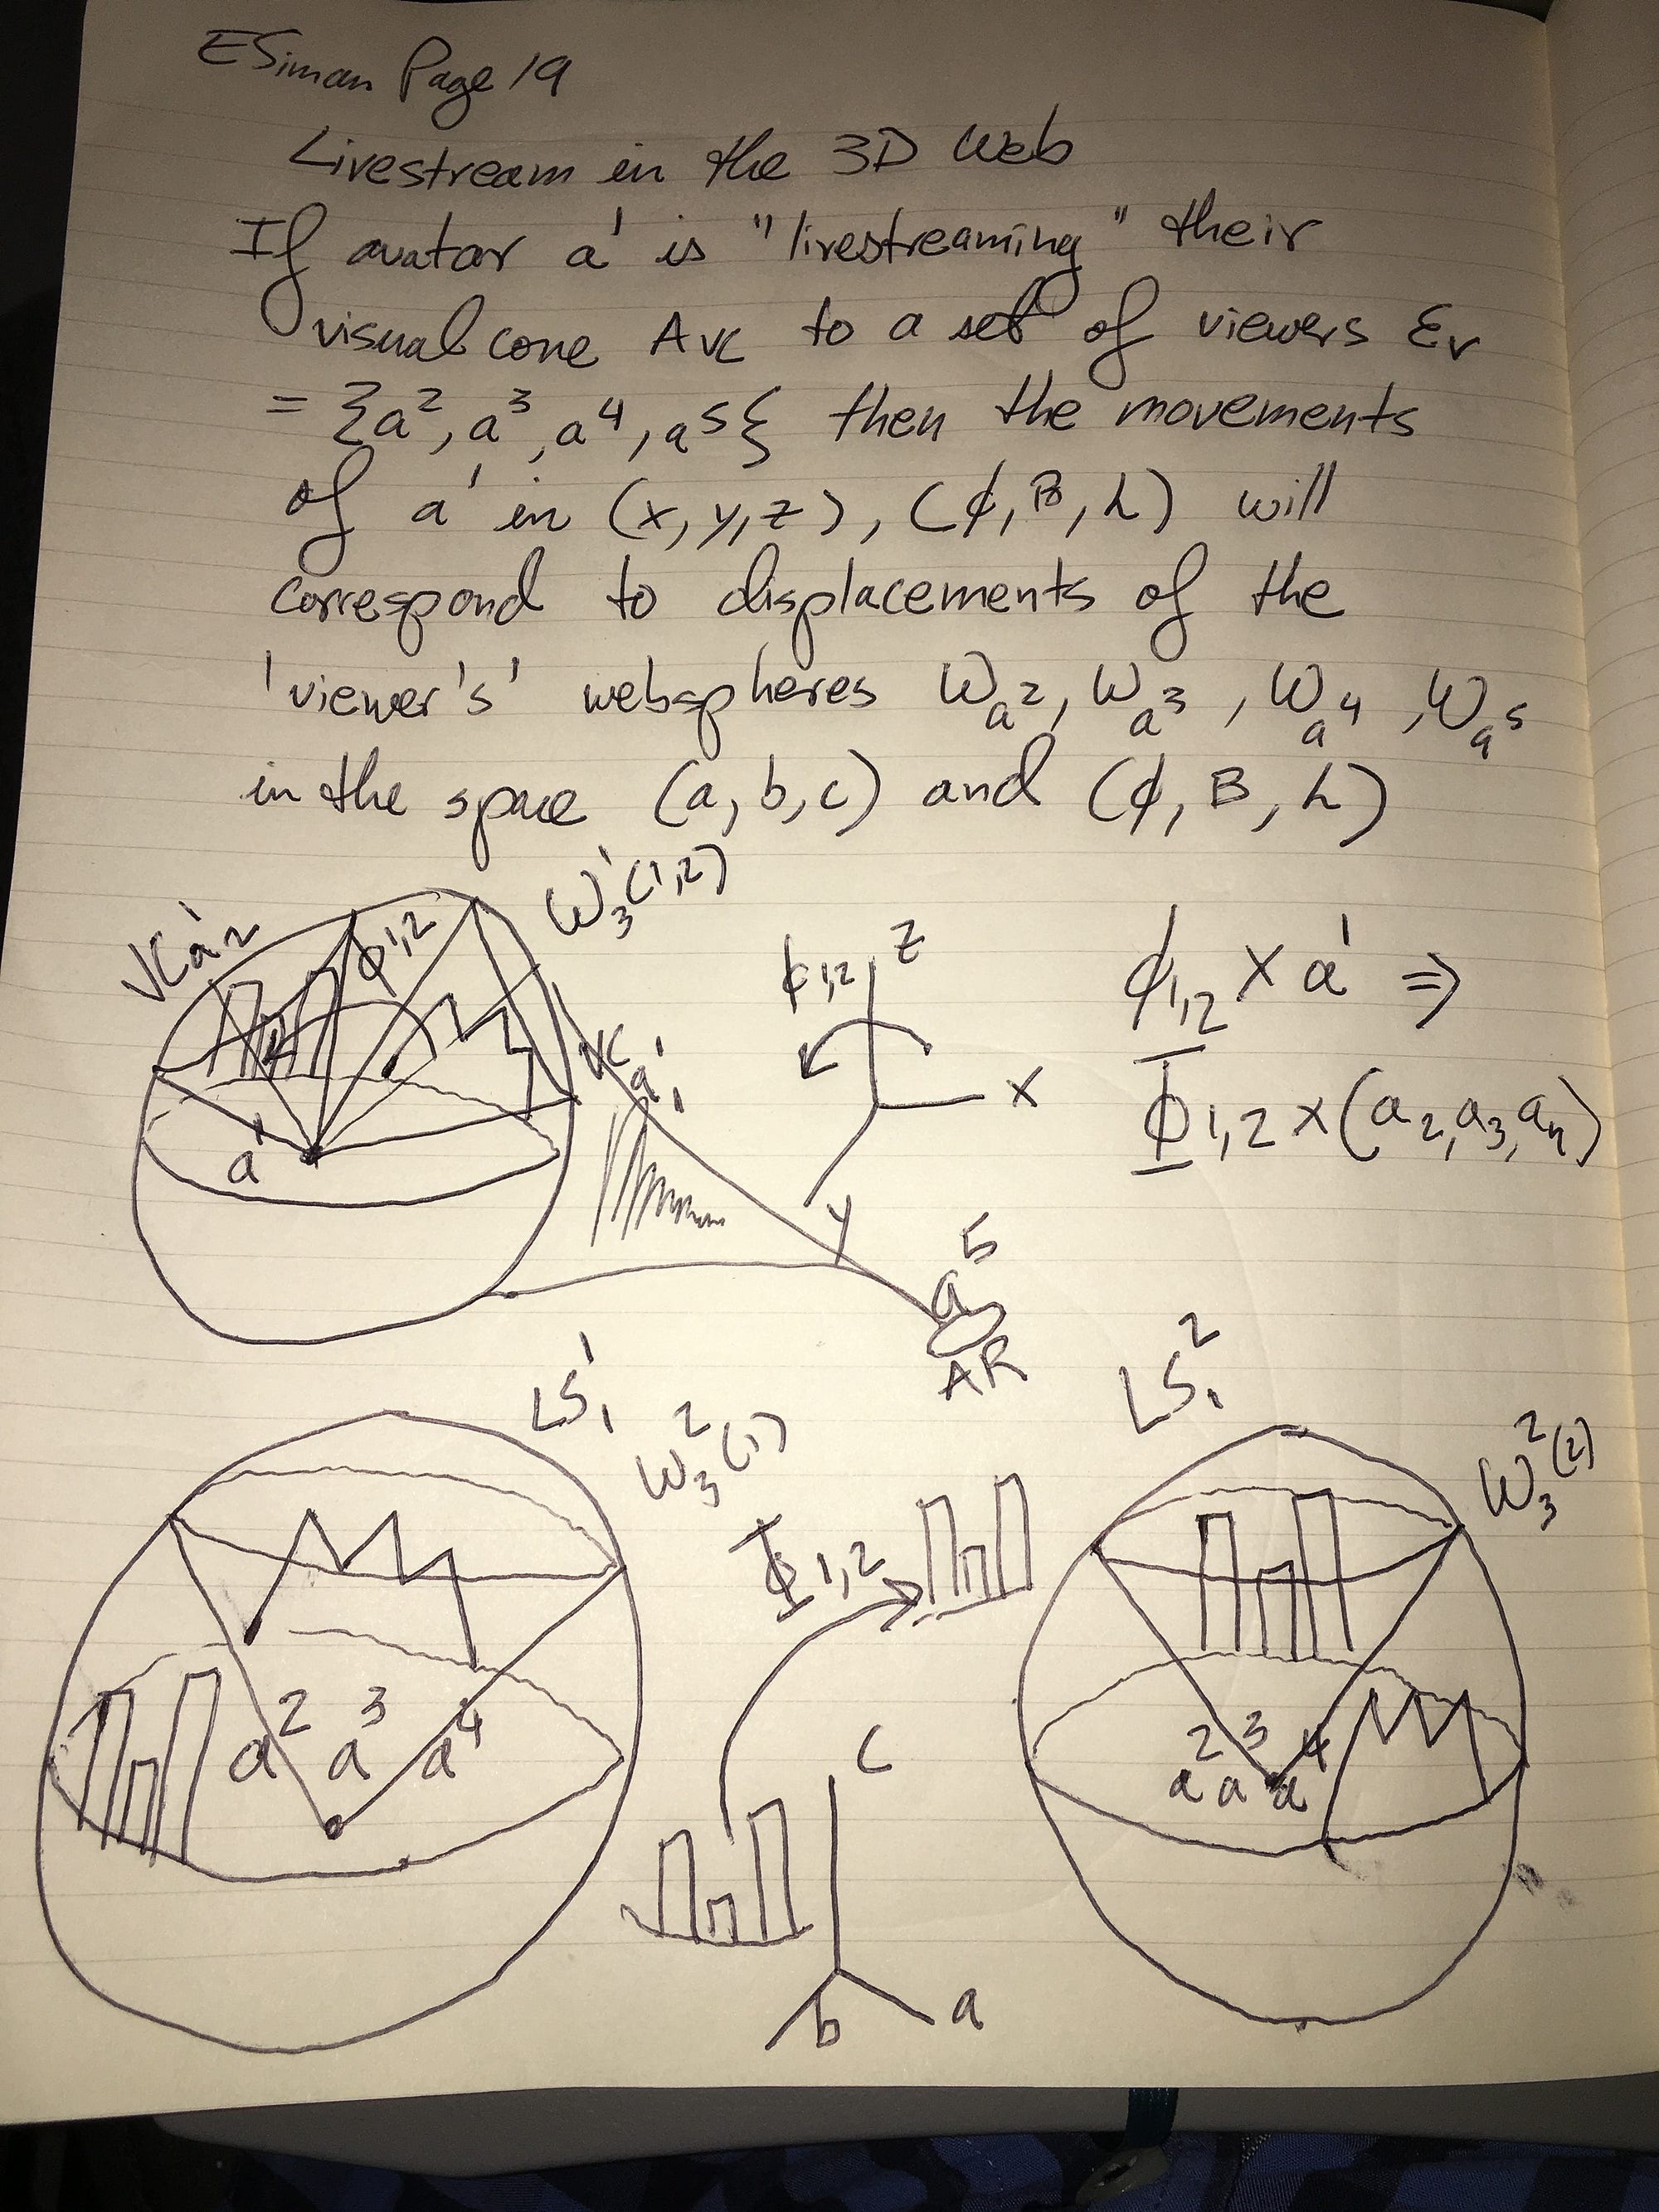 ESiman Page 19
Livestream in the 3D Web
If avatar a¹ is "livestreaming" their
visual cone Avc to a set of viewers Ev
= {a², a³, a⁴, a⁵} then the movements
of a¹ in (x, y, z), (ϕ, B, L) will
correspond to displacements of the
'viewer's' webspheres Wa², Wa³, Wa⁴, Wa⁵
in the space (a, b, c) and (ϕ, B, L)
VCa¹₂ ϕ1,2 W¹₃(1,2)
ϕ1,2 Z
ϕ1,2 × a¹ ⇒
VCa¹₁
X
Φ1,2 × (a₂, a₃, aₙ)
a¹
Y
a⁵
AR
LS¹₁
LS²₁
W²₃(1)
W²₃(2)
Φ1,2
a² a³ a⁴
C
a² a³ a⁴
b a